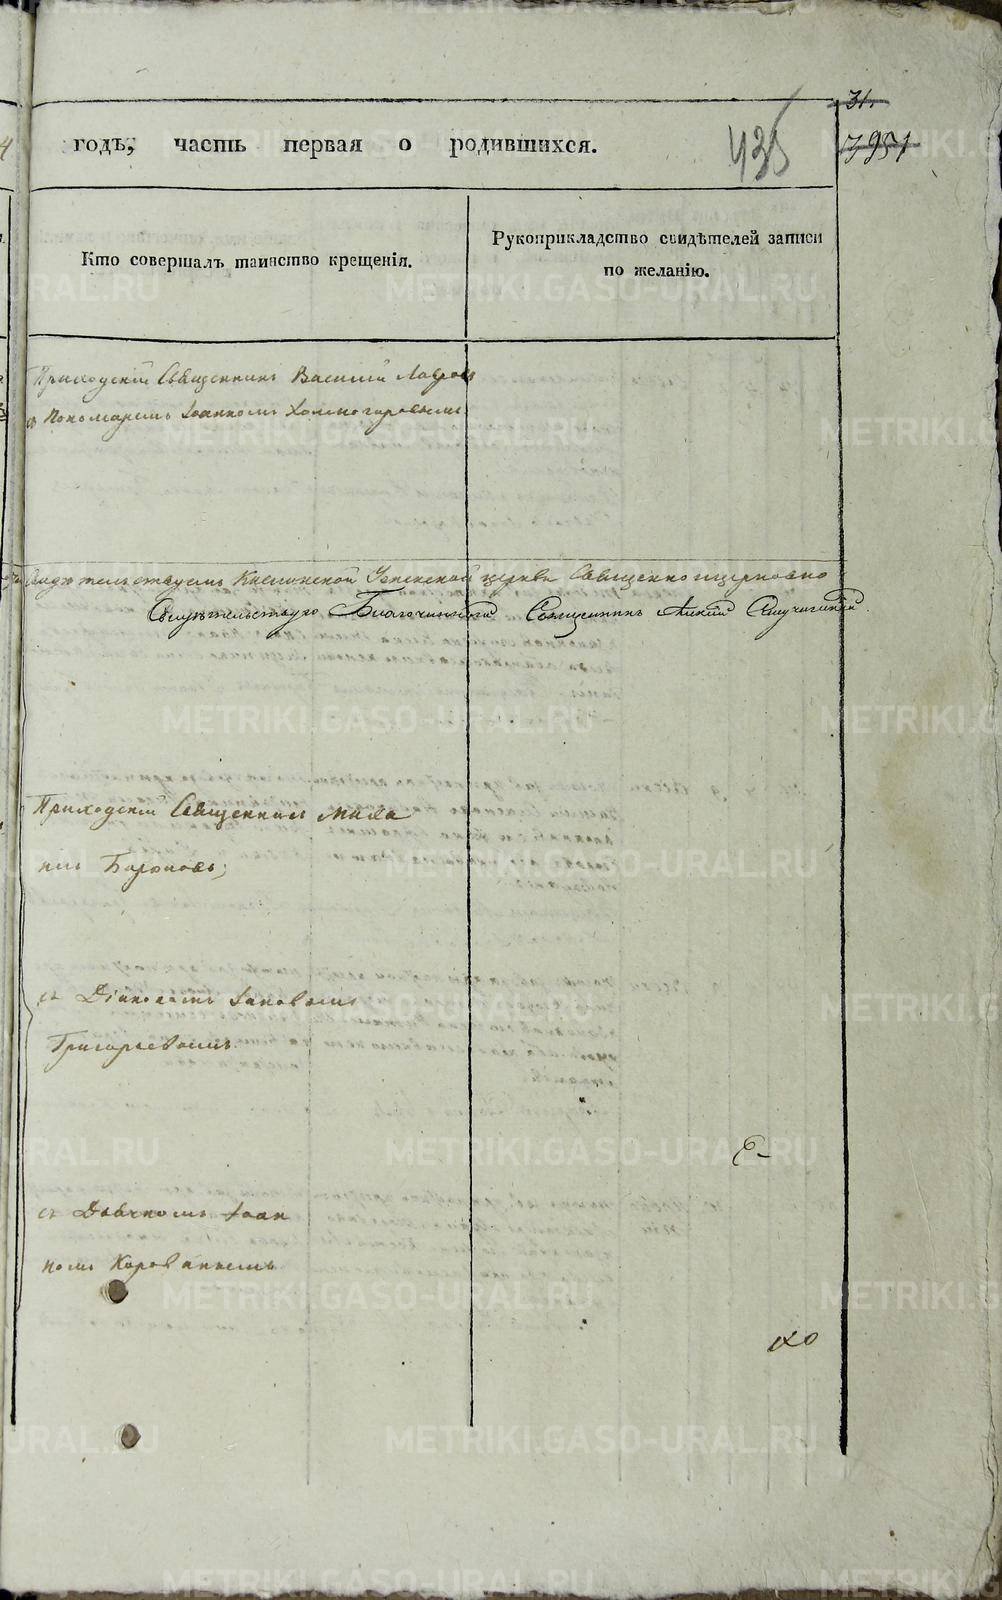 31.
3951
435
годъ, часть первая о родившихся.
Кто совершалъ таинство крещенія.
Рукоприкладство свидѣтелей записи
по желанію.
Приходскій Священникъ Василій Лавровъ
съ Пономаремъ Іоанномъ Холмогоровымъ
Каслинской Успенской церкви Священно
Свидѣтельствую Благочинный Священникъ
Приходскій Священникъ Миха
илъ Бирюковъ;
съ Діакономъ Іаковомъ
Григорьевымъ
съ Дьячкомъ Іоан
номъ Коровинымъ
METRIKI.GASO-URAL.RU